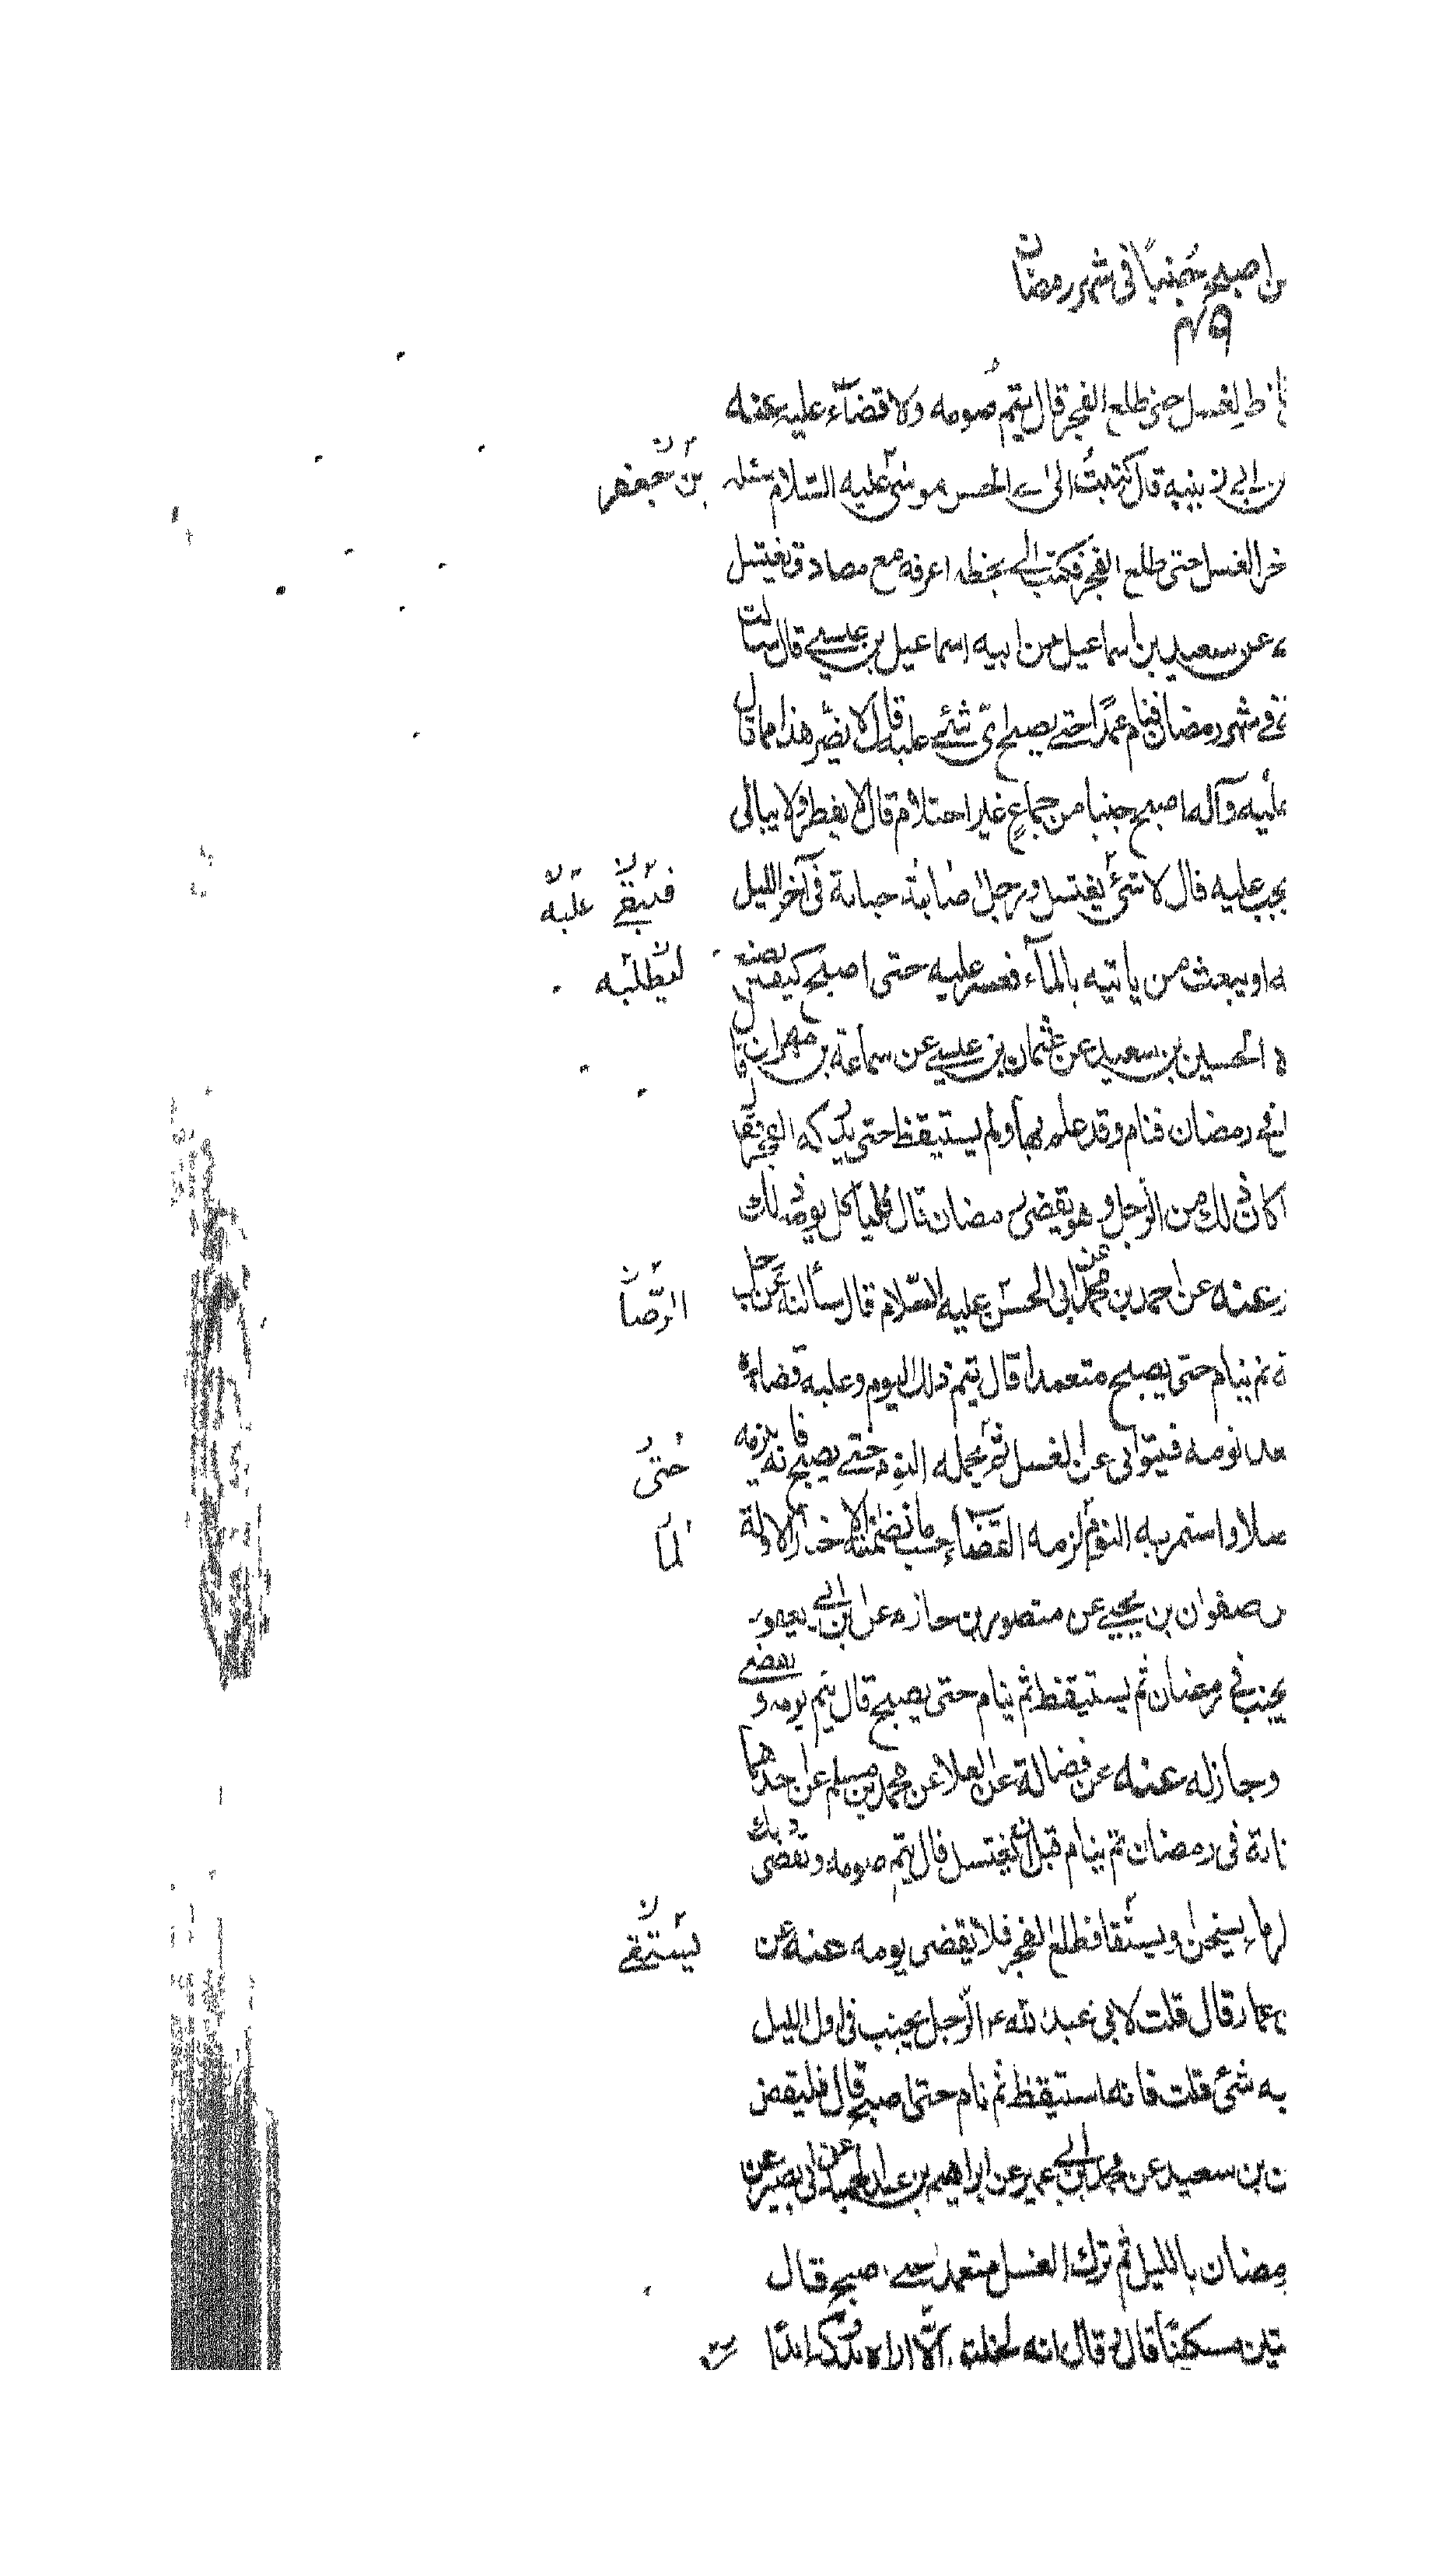 من اصبح جنباً في شهر رمضان
٤٩
لغسل حتى طلع الفجر قال يتم صومه ولا قضآء عليه عنه
قال كتبت الى ابي الحسن موسى عليه السلام
بن جعفر
خر الغسل حتى طلع الفجر فكتب الي بخطه اعرفه مع مصادق يغتسل
عن سعيد بن اسماعيل عن ابيه اسماعيل بن عيسى قال سالت
في شهر رمضان فنام عمداً حتى يصبح اى شئ عليه قال لا يضر هذا
عليه وآله اصبح جنبا من جماع غير احتلام قال لا يفطر ولا يبالى
يجب عليه قال لا شئ يغتسل ورجل اصابته جنابة في آخر الليل
فيبقى عليه
ه او يبعث من ياتيه بالمآء فعسر عليه حتى اصبح كيف يصنع
ليطلبه
الحسين بن سعيد عن عثمان بن عيسى عن سماعة بن مهران قال
في رمضان فنام وقد علم بها ولم يستيقظ حتى يدركه الفجر فقال
كان ذلك من الرجل وهو يقضى رمضان قال فلياكل يومه ذلك
عنه عن احمد بن محمد عن ابي الحسن عليه السلام قال سألته عن رجل
الرضا
ثم ينام حتى يصبح متعمدا قال يتم ذلك اليوم وعليه قضاءه
نومه فيتوانى عن الغسل ثم يحمله النوم حتى يصبح فانه يلزمه
حتى
او استمر به النوم لزمه القضآء حسب ما تضمنته الاخبار الاولة
لما
صفوان بن يحيى عن منصور بن حازم عن ابن ابي يعفور
يجنب في رمضان ثم يستيقظ ثم ينام حتى يصبح قال يتم يومه و يقضى
وجاز له عنه عن فضالة عن العلا عن محمد بن مسلم عن احدهما
في رمضان ثم ينام قبل ان يغتسل قال يتم صومه ويقضى ذلك
يسخن ويستقا فطلع الفجر فلا يقضى يومه عنه عن
يستقى
عمار قال قلت لابي عبد الله ع الرجل يجنب في اول الليل
به شئ قلت فانه استيقظ ثم نام حتى اصبح قال فليقض
بن سعيد عن محمد بن ابي عمير عن ابراهيم بن عبد الحميد عن ابي بصير عن
رمضان بالليل ثم ترك الغسل متعمدا حتى اصبح قال
ستين مسكيناً قال وقال انه لا اراه يدركه ابداً